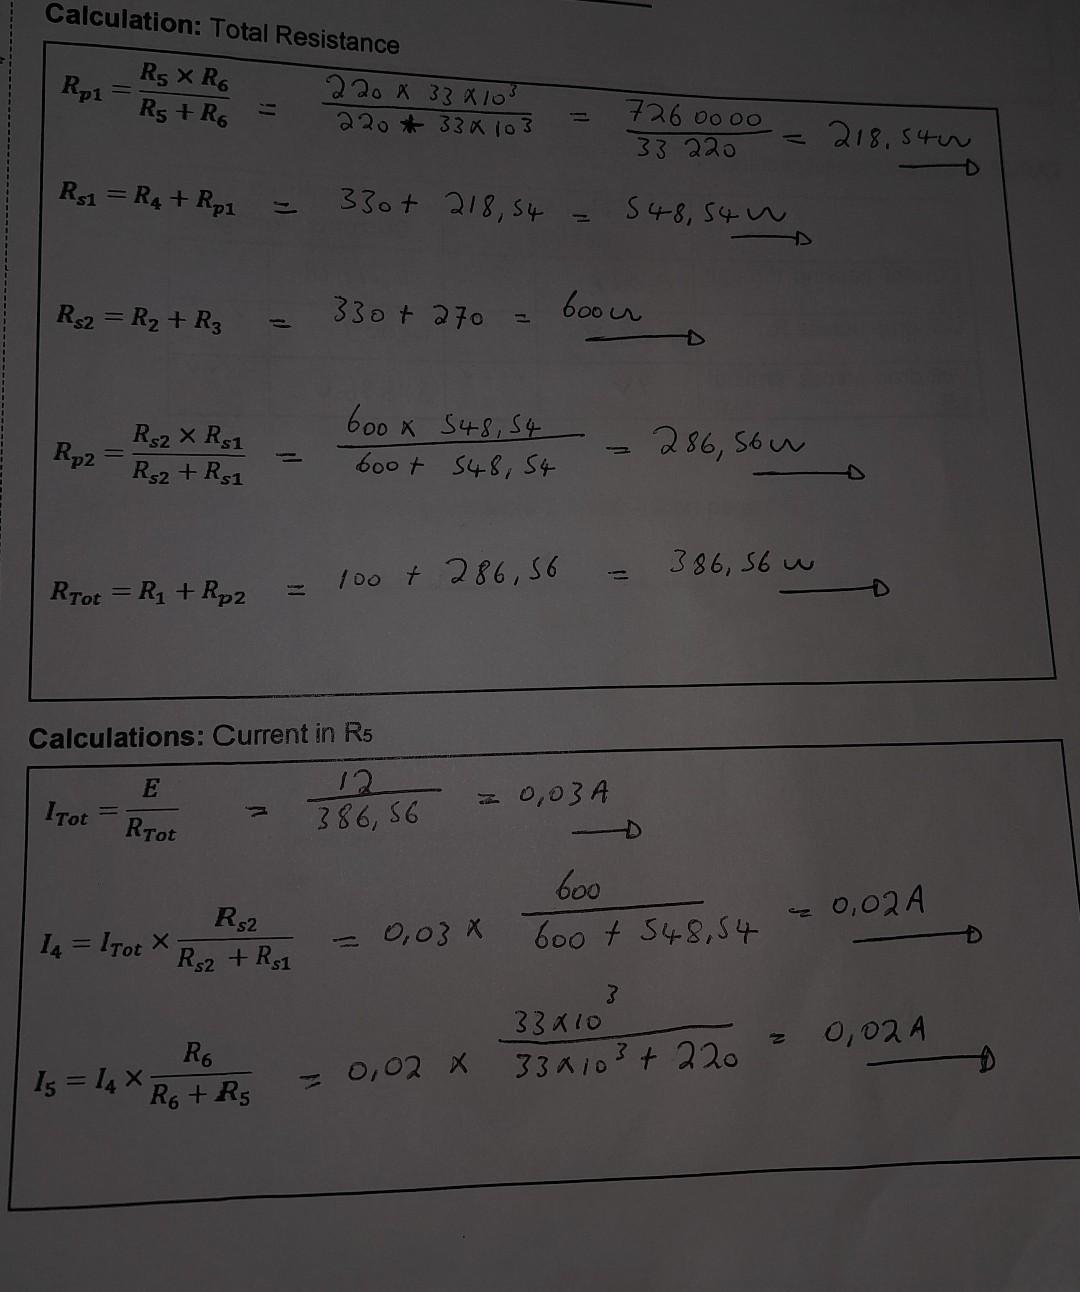 Calculation: Total Resistance
R_p1 = (R_5 × R_6)/(R_5 + R_6) = (220 × 33×10^3)/(220 + 33×10^3) = 7260000/33220 = 218,54ω
R_s1 = R_4 + R_p1 = 330 + 218,54 = 548,54ω
R_s2 = R_2 + R_3 = 330 + 270 = 600ω
R_p2 = (R_s2 × R_s1)/(R_s2 + R_s1) = (600 × 548,54)/(600 + 548,54) = 286,56ω
R_Tot = R_1 + R_p2 = 100 + 286,56 = 386,56ω
Calculations: Current in R5
I_Tot = E/R_Tot = 12/386,56 = 0,03A
I_4 = I_Tot × R_s2/(R_s2 + R_s1) = 0,03 × 600/(600 + 548,54) = 0,02A
I_5 = I_4 × R_6/(R_6 + R_5) = 0,02 × 33×10^3/(33×10^3 + 220) = 0,02A